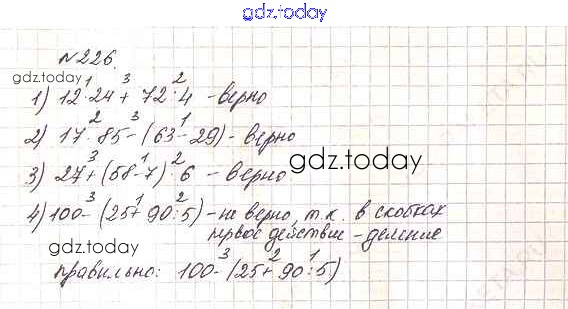 gdz.today
№226.
gdz.today
1) 12·¹24+³72·²4 - верно
2) 17·²85-³(63-¹29) - верно
3) 27+³(58-¹7)·²6 - верно
gdz.today
4) 100-³(25+¹90:²5) - не верно, т.к. в скобках
первое действие - деление
gdz.today
правильно: 100-³(25+²90:¹5)